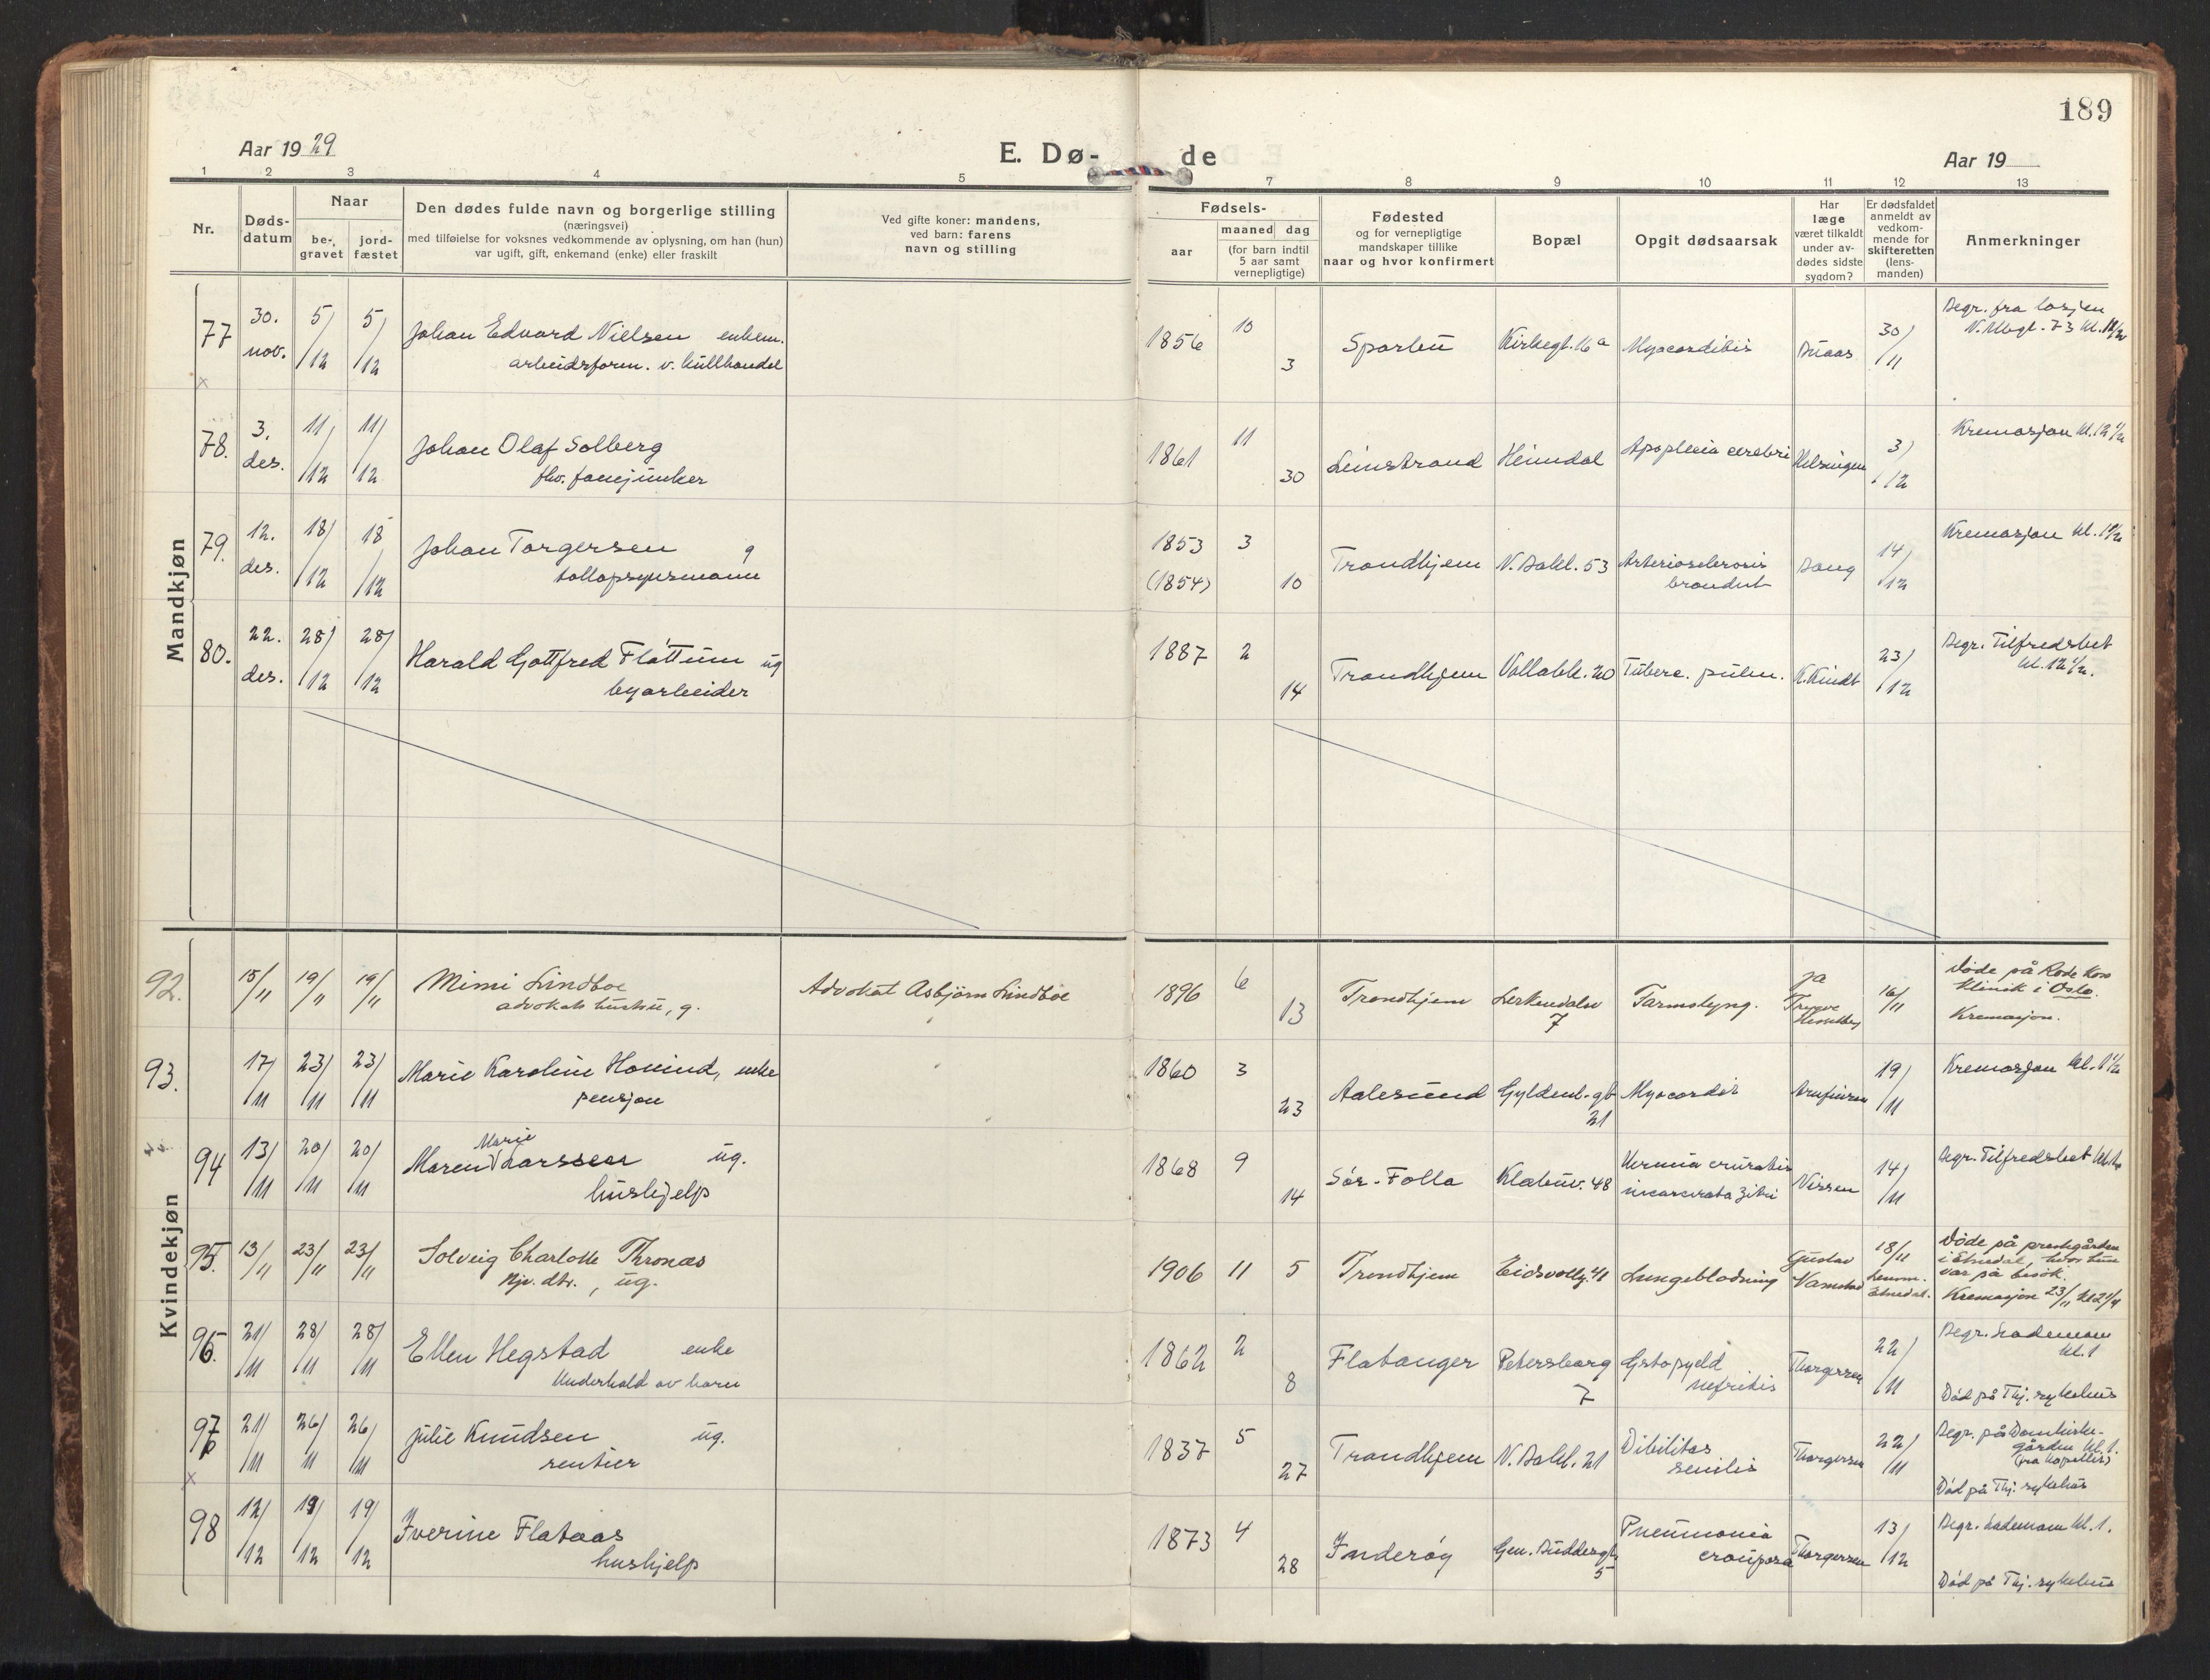 189
Aar 1929
E. Dø-
de
Aar 19
1 2 3 4 5 7 8 9 10 11 12 13
Nr.
Døds-
datum
Naar
be-
gravet
jord-
fæstet
Den dødes fulde navn og borgerlige stilling
(næringsvei)
med tilføielse for voksnes vedkommende av oplysning, om han (hun)
var ugift, gift, enkemand (enke) eller fraskilt
Ved gifte koner: mandens,
ved barn: farens
navn og stilling
Fødsels-
aar
maaned dag
(for barn indtil
5 aar samt
vernepligtige)
Fødested
og for vernepligtige
mandskaper tillike
naar og hvor konfirmert
Bopæl
Opgit dødsaarsak
Har
læge
været tilkaldt
under av-
dødes sidste
sygdom?
Er dødsfaldet
anmeldt av
vedkom-
mende for
skifteretten
(lens-
manden)
Anmerkninger
Mandkjøn
77 30. nov. 5/12 5/12
Johan Edvard Nielsen enkem.
arbeidsform. v. kullhandel
1856 10 3 Sparbu Kirkegt. 16a Myocarditis Duaas 30/11
Begr. fra losjen
78. 3. des. 11/12 11/12
Johan Olaf Solberg
fhv. fanejunker
1861 11 30 Leinstrand Heimdal Apoplexia cerebri Helsingen 3/12
Kremasjon kl. 12 1/2
79. 12. des. 18/12 18/12
Johan Torgersen g
tollopsynsmann
1853 3
(1854) 10 Trondhjem N. Bakl. 53 Arteriosclerosis 14/12
Kremasjon
80. 22. des. 28/12 28/12
Harald Gottfred Flåttum ug
byarbeider
1887 2 14 Trondhjem Vollabk. 20 Tuberc. pulm. K. Kindt 23/12
Begr. Tilfredshet
kl. 12 1/2.
Kvindekjøn
92. 15/11 19/11 19/11
Mimi Lindboe
advokats hustru, g.
Advokat Asbjørn Lindboe
1896 6 13 Trondhjem Lerkendalsv
7
Tarmslyng.
ja
Trygve
16/11
Døde på Røde Kors
klinik i Oslo.
Kremasjon.
93. 17/11 23/11 23/11
Marie Karoline Hovind, enke
pensjon
1860 3 23 Aalesund Gyldenl. gt
21
Myocardit Arnfinsen 19/11
Kremasjon kl. 1 1/2
94 13/11 20/11 20/11
Marie
Maren Larssen ug.
hushjelp
1868 9 14 Sør-Folla Klæbuv. 48
incarcerata
Nissen 14/11
Begr. Tilfredshet
95. 13/11 23/11 23/11
Solveig Charlotte Thronæs
Kjv. dtr., ug.
1906 11 5 Trondhjem Eidsvollg. 41 Lungeblødning
Gustav
18/11
Lensm.
Etnedal.
Døde på prestegården
i Etnedal, hvor hun
var på besøk.
Kremasjon 23/11 kl 2 1/4
96. 21/11 28/11 28/11
Ellen Hegstad enke
Underhold av barn
1862 2 8 Flatanger Petersborg
7
Cystopyelo
nefritis
Thorgersen 22/11
Begr. Lademoen
kl. 1
Død på Thj. sykehus
97 21/11 26/11 26/11
Julie Knudsen ug.
rentier
1837 5 27 Trondhjem N. Bakl. 21
Dibilitas
senilis
Thorgersen 22/11
Begr. på Domkirke-
gården kl. 1.
(fra kapellet)
Død på Thj. sykehus
98 12/12 19/12 19/12
Iverine Flataas
hushjelp
1873 4 28 Inderøy Gen. Buddesgt
5
Pneumonia
crouposa
Thorgersen 13/12
Begr. Lademoen kl. 1.
Død på Thj. sykehus